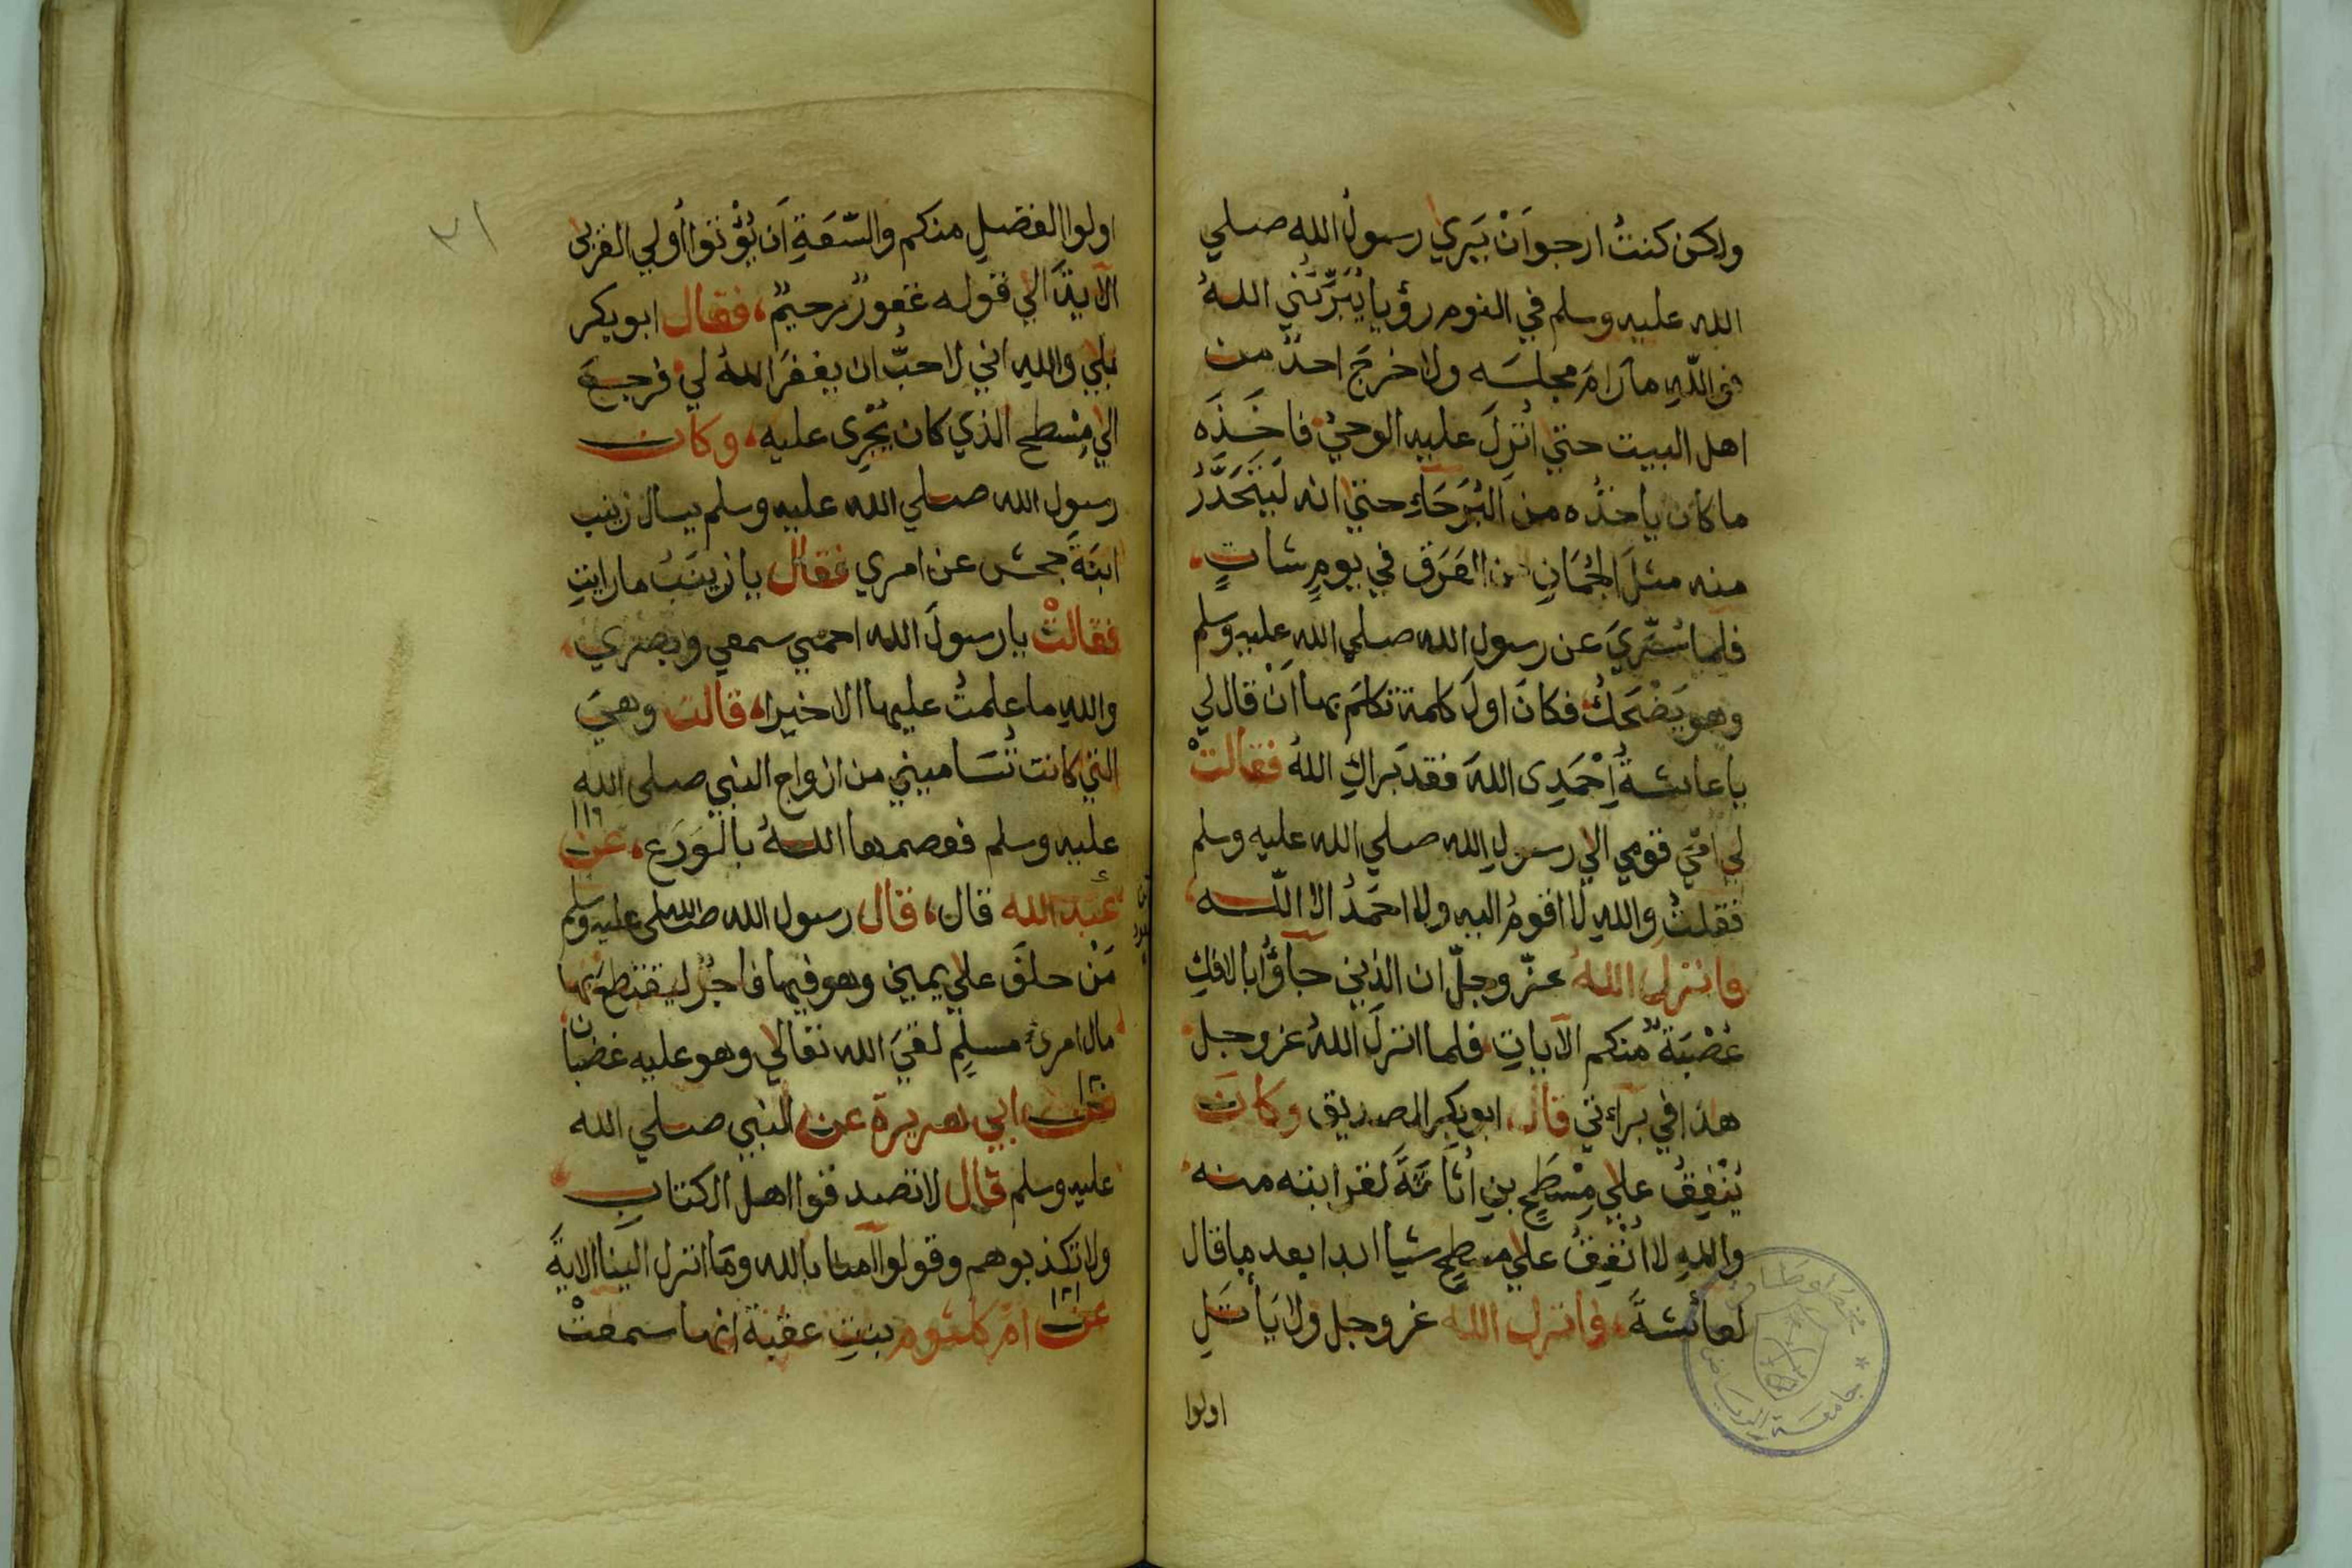 ولكن كنتُ ارجو اَنْ يَرى رسولُ الله صلي
الله عليه وسلم في النوم رؤيا يُبَرِّئني اللهُ
فوالله ما رامَ مجلسَه ولا خرجَ احدٌ من
اهل البيت حتي اُنزِلَ عليه الوحيُ فاخَذَه
ما كان ياخذُه من البُرَحَاءِ حتي انه لَيَتَحَدَّرُ
منه مثلَ الجُمَانِ من العَرَقِ في يومٍ شاتٍ
فلما سُرِّيَ عن رسول الله صلي الله عليه وسلم
وهو يَضْحَكُ فكانَ اولَ كلمة تكلمَ بها اَنْ قال لي
يا عائشةُ اِحْمَدِى اللهَ فقد بَرَّاكِ اللهُ فقالتْ
لي امّي قومي الي رسولِ الله صلي الله عليه وسلم
فقلتُ والله لا اقومُ اليه ولا احمَدُ الا اللّه
وانزل اللهُ عزّ وجلّ ان الذين جاؤُا بالافكِ
عُصْبَةٌ منكم الآياتِ فلما انزلَ اللهُ عز وجل
هذا في براءتي قال ابو بكر الصديق وكانَ
يُنْفِقُ علي مِسْطَحِ بنِ اُثاثَةَ لقرابته منه
والله لا اُنْفِقُ علي مسطحٍ شيا ابدا بعد ما قال
لعائشةَ فانزل الله عز وجل ولا يَأتَلِ
اولوا
٢١
اولوا الفضلِ منكم والسَّعَةِ اَن يُؤْتوا اُولي القربى
الآيةَ الي قوله غفورٌ رحيمٌ فقال ابو بكر
بلي والله اني لاحبُّ ان يغفرَ اللهُ لي فرجعَ
الي مِسْطح الذي كان يُجْرِى عليه وكان
رسول الله صلي الله عليه وسلم يسال زينب
ابنةَ جحش عن امري فقال يا زينبُ ما رايتِ
فقالتْ يا رسولَ الله احمي سمعي وبصري
والله ما علمتُ عليها الا خيرا قالت وهيَ
التي كانت تُسَاميني من ازواج النبي صلى الله
عليه وسلم فعصمها اللهُ بالوَرَعِ عن
١١٩
عبد الله قال قال رسول الله صلى الله عليه وسلم
مَنْ حلفَ علي يمين وهو فيها فاجرٌ ليقتطعَ بها
مال امرئ مسلمٍ لقيَ الله تعالي وهو عليه غضبان
عن ابي هريرة عن النبي صلي الله
عليه وسلم قال لا تصدقوا اهل الكتاب
ولا تكذبوهم وقولوا آمنا بالله وما انزل الينا الايةَ
١٢١
عن ام كلثوم بنتِ عقبةَ انها سمعتْ